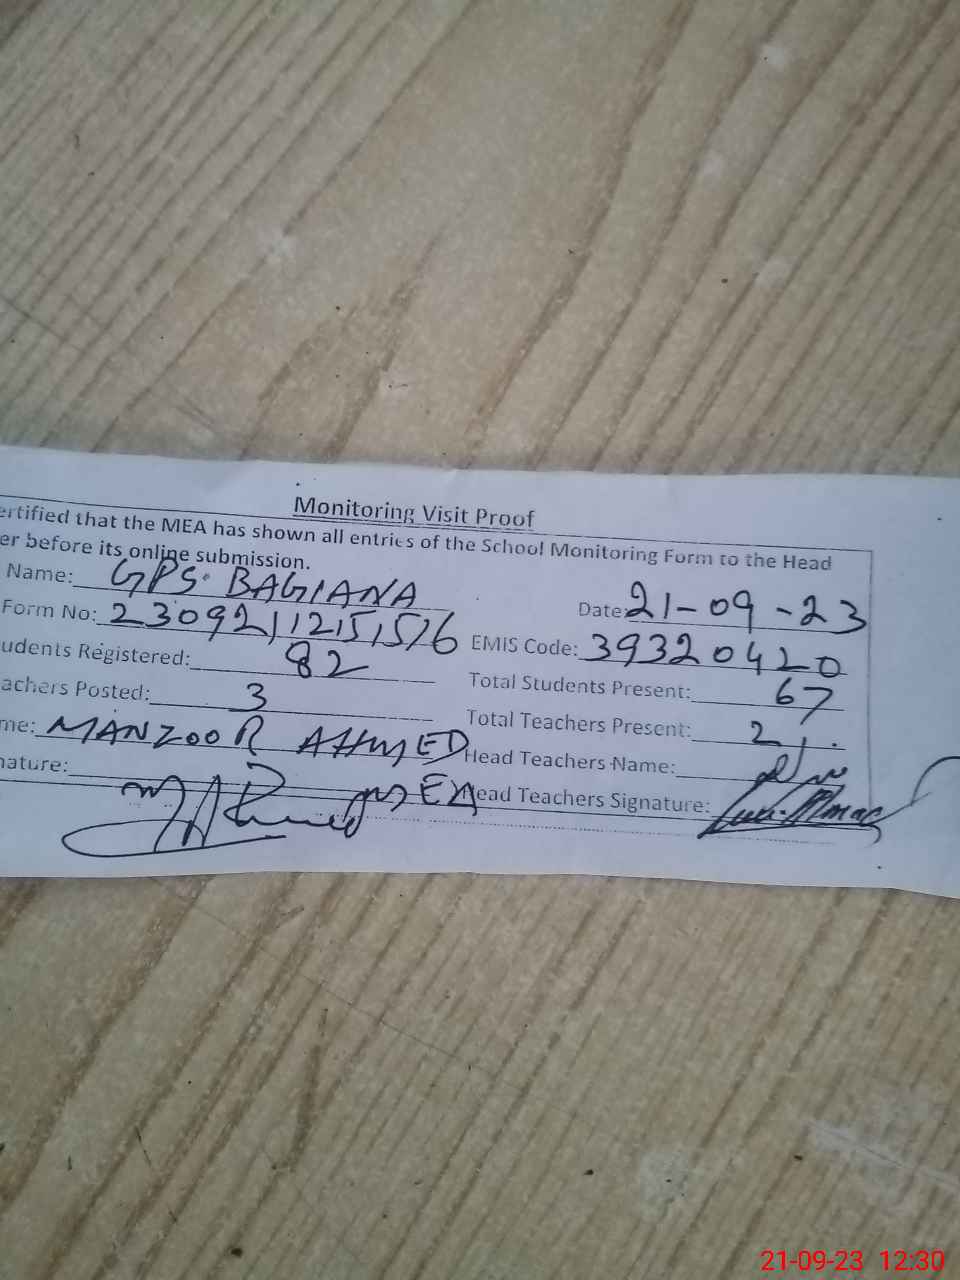 Monitoring Visit Proof
ertified that the MEA has shown all entries of the School Monitoring Form to the Head
er before its online submission.
Name: GPS. BAGIANA Date: 21-09-23
Form No: 23092112151516 EMIS Code: 39320420
udents Registered: 82 Total Students Present: 67
achers Posted: 3 Total Teachers Present: 2
me: MANZOOR AHMED Head Teachers Name:
nature: MEA Head Teachers Signature:
21-09-23 12:30